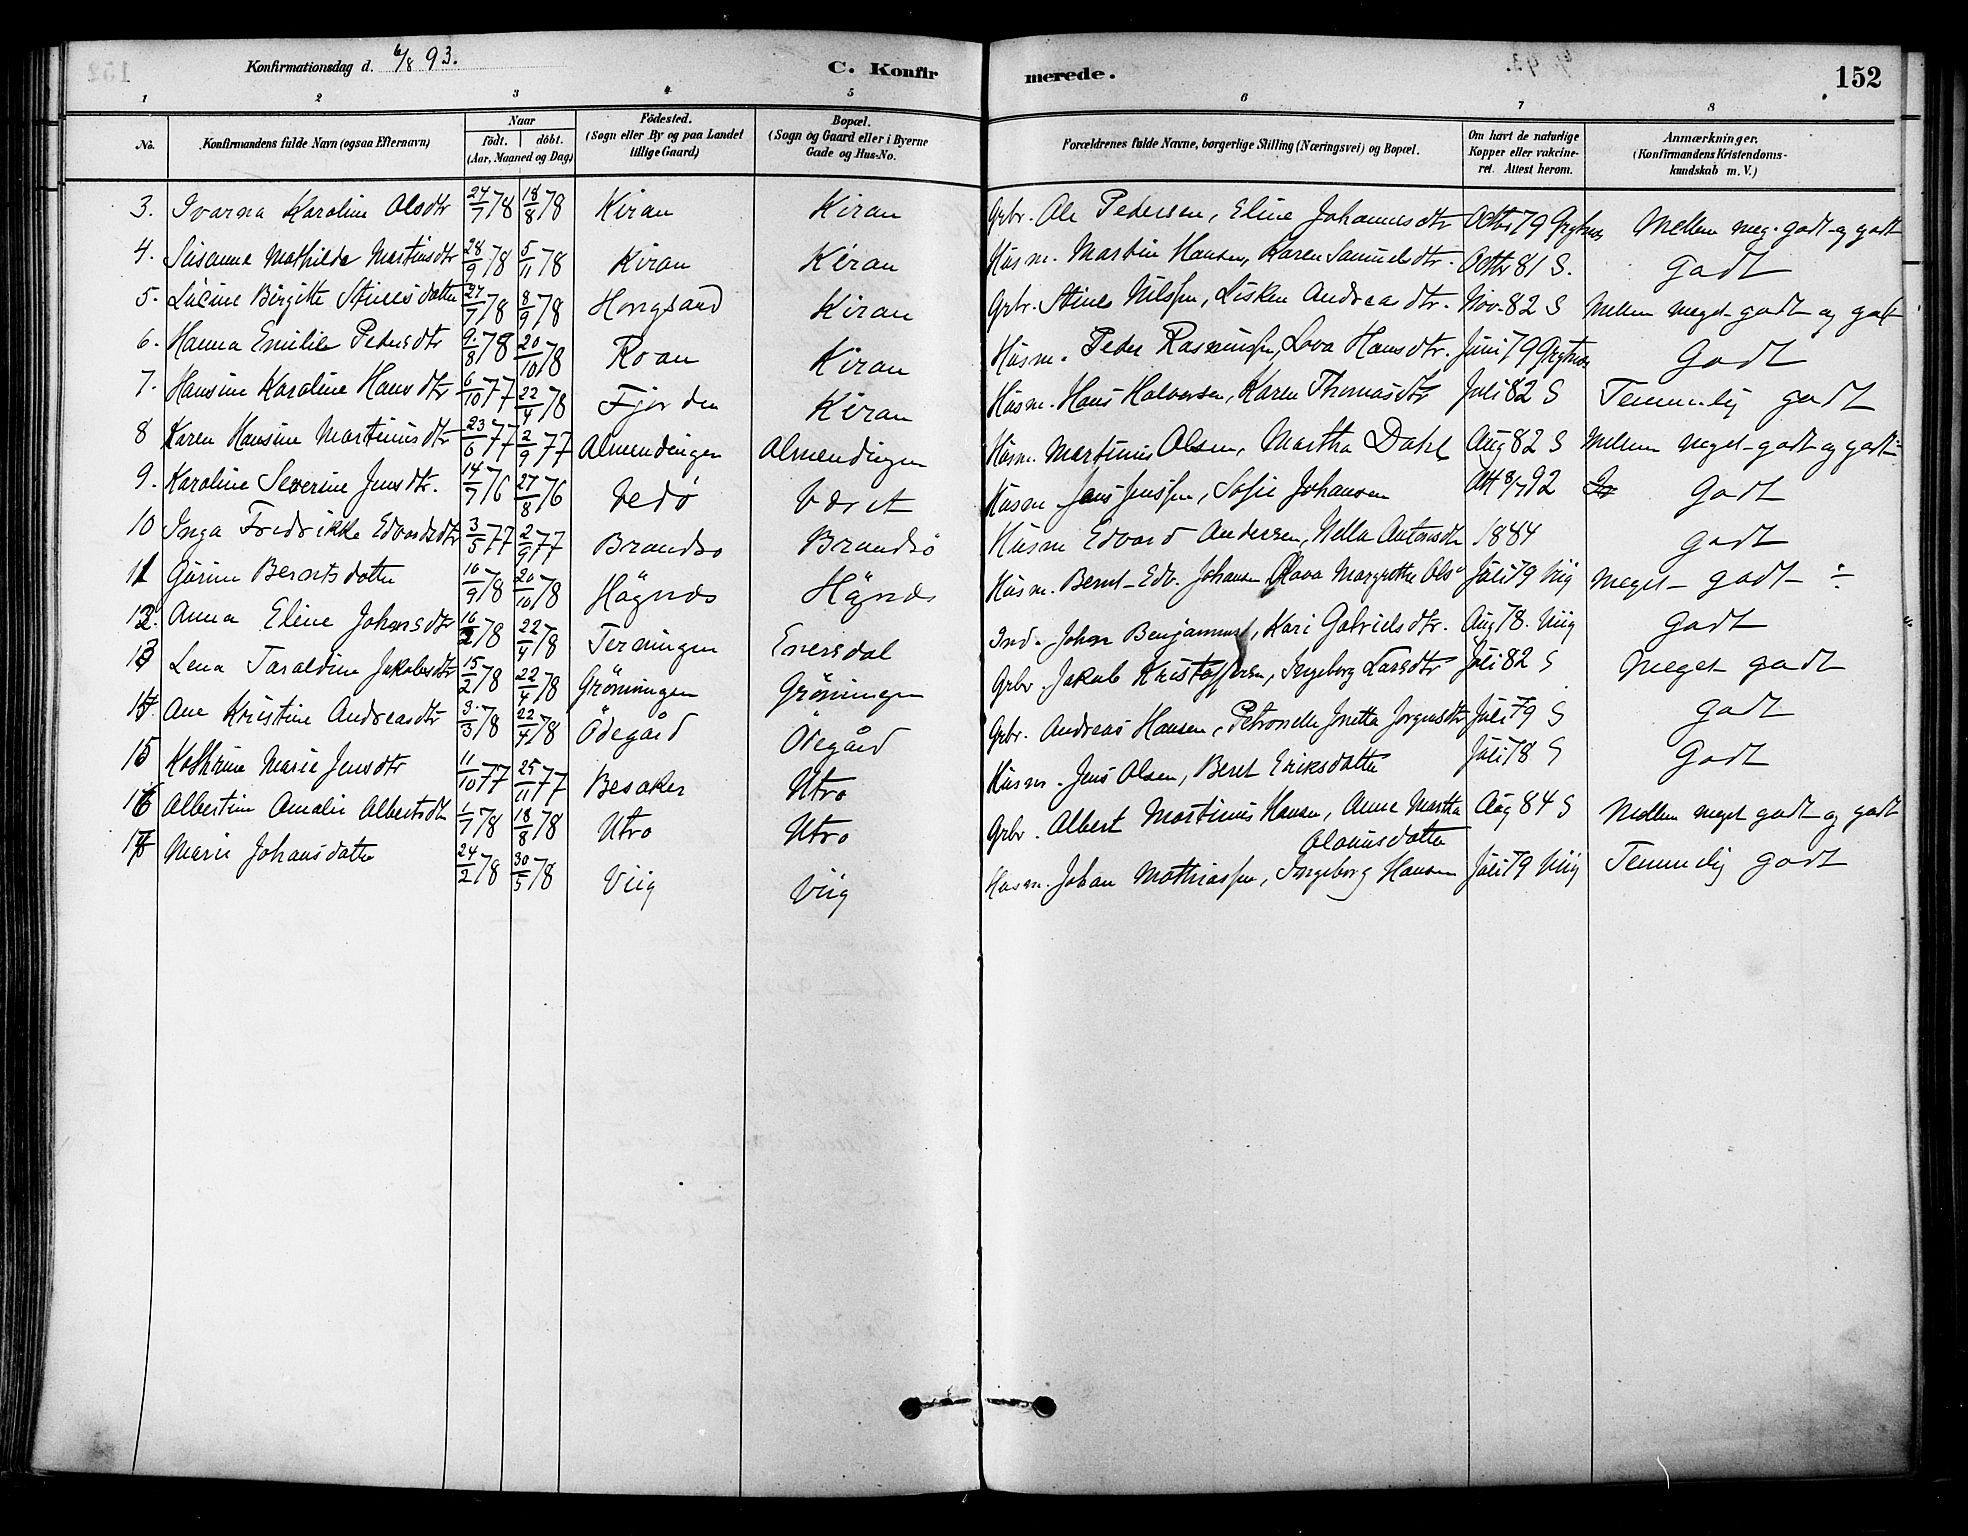 Konfirmationsdag d. 6/8 93. C. Konfir merede. 152
1 2 3 4 5 6 7 8
No. Konfirmandens fulde Navn (ogsaa Efternavn) Naar födt. döbt. (Aar, Maaned og Dag) Födested. (Sogn eller By og paa Landet tillige Gaard) Bopæl. (Sogn og Gaard eller i Byerne Gade og Hus-No. Forældrenes fulde Navne, borgerlige Stilling (Næringsvei) og Bopæl. Om havt de naturlige Kopper eller vakcineret. Attest herom. Anmærkninger. (Konfirmandens Kristendomskundskab m. V.)
3. Ivarna Karoline Olsdtr 24/7 78 18/8 78 Kiran Kiran Grbr. Ole Pedersen, Eline Johannesdtr Octbr 79 Mellem meg. godt og godt
4. Susanna Mathilde Martinsdtr 28/9 78 5/11 78 Kiran Kiran Husm. Martin Hansen, Karen Samuelsdtr. Octbr 81 S. Godt
5. Lucine Birgitte Stinesdatter 27/7 78 8/9 78 Hongsand Kiran Grbr. Stines Nilssen, Lisken Andreasdtr. Nov. 82 S Mellem meget godt og godt
6. Hanna Emilie Pedersdtr 9/8 78 20/10 78 Roan Kiran Husm. Peder Rasmussen, Lova Hansdtr. Juni 79 Godt
7. Hansine Karoline Hansdtr 6/10 77 22/4 78 Fjorden Kiran Husm. Hans Halvorsen, Karen Thomasdtr Juli 82 S Temmelig godt
8 Karen Hansine Martinusdtr 23/6 77 2/9 77 Almendingen Almendingen Husm. Martinus Olsen, Martha Dahl Aug 82 S Mellem meget godt og godt
9. Karoline Severine Jensdtr. 14/7 76 27/8 76 Vedö Været Husm Jens Jenssen, Sofie Johansen Att 8/7 92 Godt
10 Inga Fredrikke Edvardsdtr 3/5 77 2/9 77 Brandsö Brandsö Husm Edvard Andersen, Nella Antonsdtr 1884 Godt
11 Gurine Berntsdatter 16/9 78 20/10 78 Högnæs Högnæs Husm. Bernt Edv. Johansen Olava Margrethe Ols" Juli 79 Viig Meget godt ÷
12 Anna Eline Johansdtr 16/2 78 22/4 78 Terningen Enersdal Ind. Johan Benjaminsen, Kari Gabrielsdtr. Aug 78. Viig Godt
13 Lena Taraldine Jakobsdtr 15/2 78 22/4 78 Gröningen Gröningen Grbr. Jakob Kristoffersen, Ingeborg Larsdtr Juli 82 S Meget godt
14 Ane Kristine Andreasdtr 3/3 78 22/4 78 Ödegård Ödegård Grbr. Andreas Hansen, Petronelle Jnetta Jorgensdtr Juli 79 S Godt
15 Kathrine Marie Jensdtr 11/10 77 25/11 77 Besaker Utro Husm. Jens Olsen, Beret Eriksdatter Juli 78 S Godt
16 Albertine Amalie Albertsdtr 1/7 78 18/8 78 Utro Utro Grbr. Albert Martinus Hansen, Anne Martha Olausdatter Aug 84 S Mellem meget godt og godt
17 Marie Johansdatter 24/2 78 30/5 78 Viig Viig Husm. Johan Mathiassen, Ingeborg Hansen Juli 79 Viig Temmelig godt